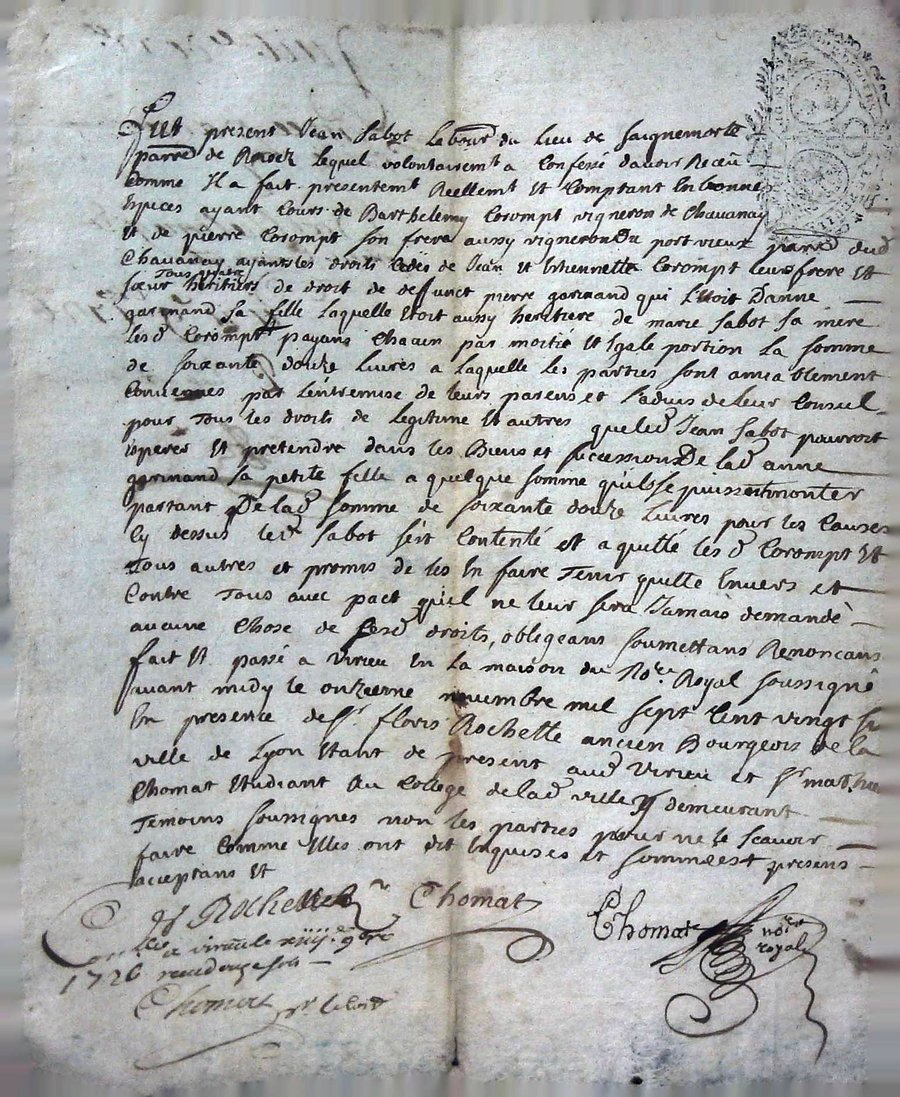 Fut present Jean Sabot Labour du Lieu de Saignemorte
parre de Roiez lequel volontairemt a Confessé davoir Receu
Comme Il a fait presentemt Reellemt Et Comptant En bonnes
Espuces ayant Cours de Barthelemy Corompt vigneron de Chavanay
Et de pierre Corompt Son frere aussy vigneron Du port vieux parre dud
Chavanay ayants les droits Cedés de Jean Et Ethiennette Corompt leurs frere Et
Sœur Tous heritiers de droit de deffunct pierre garmand qui L'Etoit Danne
garmand Sa fille Laquelle Etoit aussy heritiere de marie Sabot Sa mere
Lesd Corompt payans Chacun par moitié Et Egale portion La Somme
de Soixante douze Livres a Laquelle Les parties Sont amiablement
Convenues par L'entremise de leurs parens et L'advis de leur Conseil
pour Tous les droits de Legitime Et autres que led Jean Sabot pourroit
Esperer Et pretendre dans les Biens et Successions De lad anne
garmand Sa petite fille a quelque Somme qu'ils Se puissent monter
partant De lad Somme de Soixante douze Livres pour les Causes
Cy dessus led Sabot S'est Contenté et a quitté les d Corompt Et
Tous autres et promis de les En faire Tenir quitte Envers et
Contre Tous avec pact qu'il ne leur Sera Jamais demandé
aucune Chose de Cesd droits, obligeans Soumettans Renoncans
fait Et passé a virieu En La maison du No.re Royal Soussigné
avant midy le onzieme novembre mil Sept Cent vingt Six
En presence de Sr floris Rochette ancien Bourgeois de la
ville de Lyon Etant de present aud Virieu et Sr mathieu
Chomat Etudiant Au College de lad ville y demeurant
Temoins Soussignes non les parties pour ne le Scavoir
faire Comme Elles ont dit Enquises et Sommées presens
acceptans Et
Rochette Chomat Chomat nore
royal
Conllé a virieu le xiiij 9bre
1726 receu douze sols
Chomat